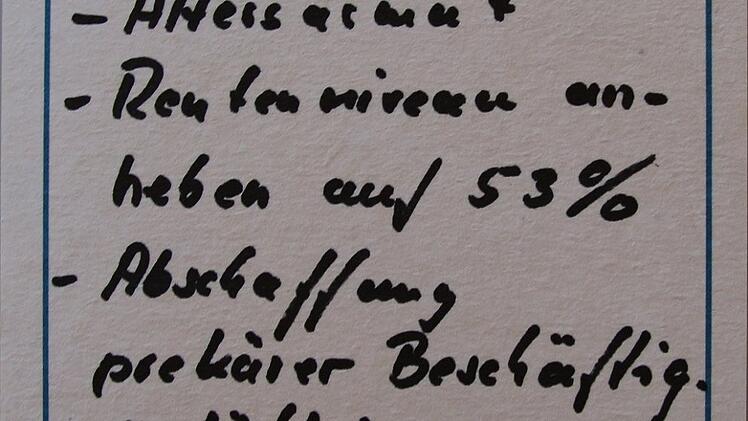 - Altersarmut
- Rentenniveau an-
heben auf 53%
- Abschaffung
prekärer Beschäftig.